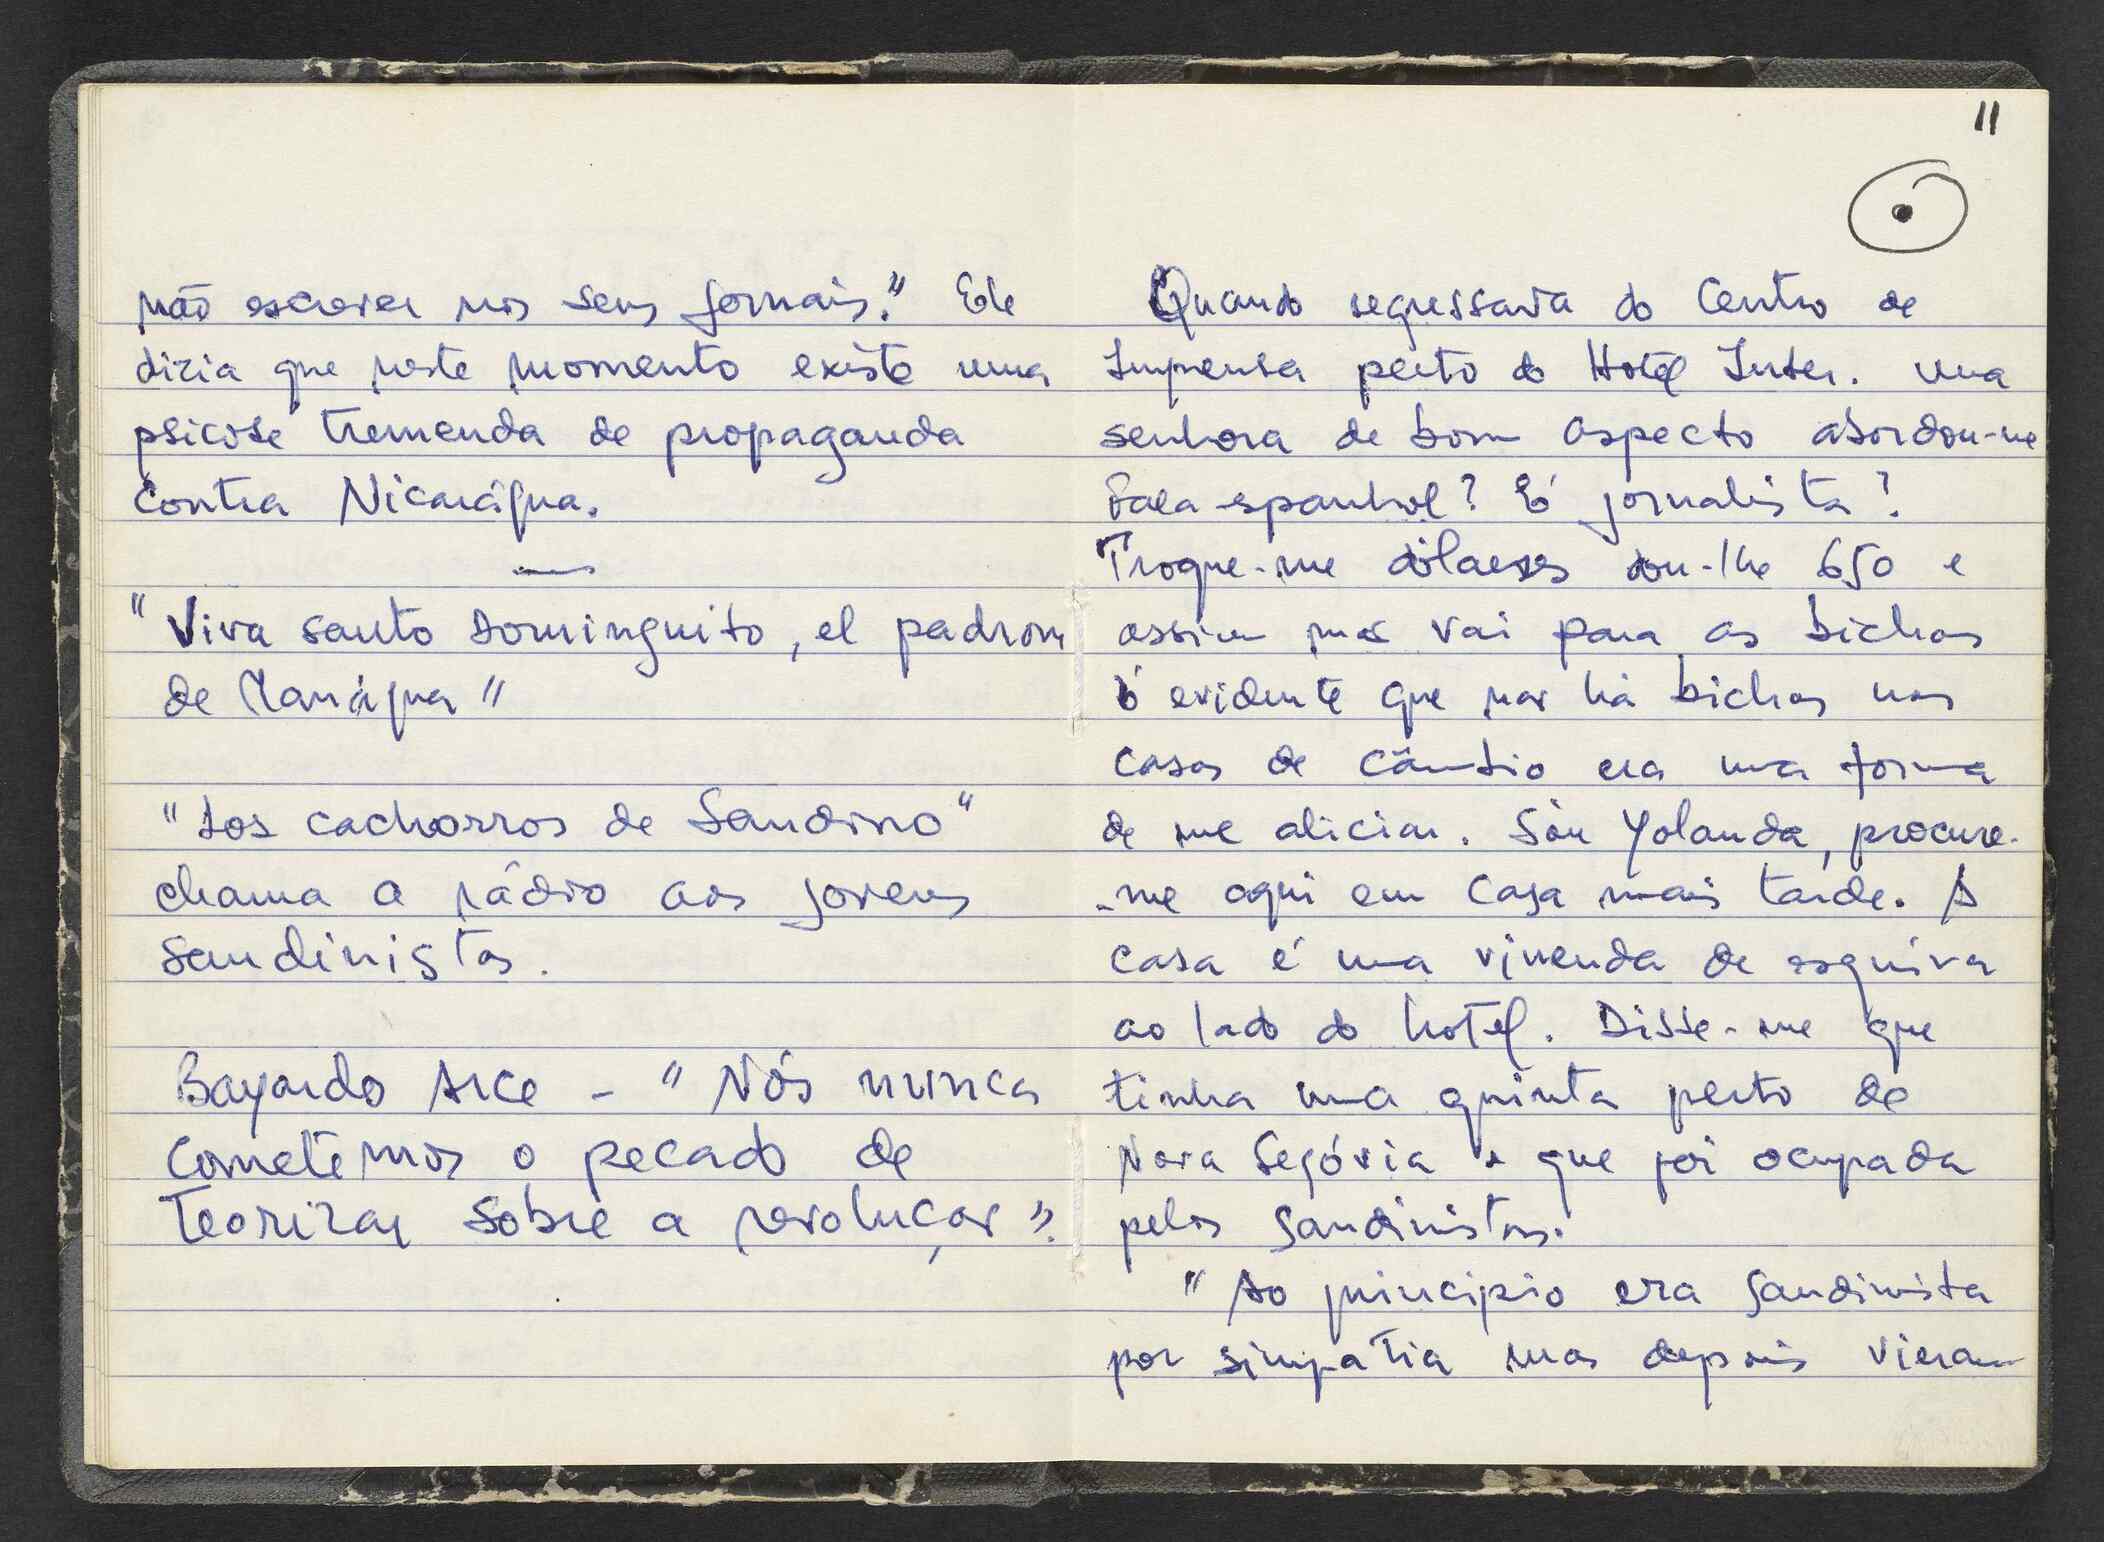 não escrever nos seus jornais." Ele
diria que neste momento existe uma
psicose tremenda de propaganda
contra Nicarágua.
"Viva santo Dominguito, el padrom
de Manágua"
"Los cachorros de Sandino"
chama a rádio aos jovens
sandinistas.
Bayardo Arce - "Nós nunca
cometemos o pecado de
teorizar sobre a revolução".
11
Quando regressava do Centro de
Imprensa perto do Hotel Inter. uma
senhora de bom aspecto abordou-me
Fala espanhol? É jornalista?
Troque-me dólares dou-lhe 650 e
assim não vai para as bichas
É evidente que não há bichas nas
casas de câmbio era uma forma
de me aliciar. Sou Yolanda, procure-
-me aqui em casa mais tarde. A
casa é uma vivenda de esquina
ao lado do hotel. Disse-me que
tinha uma quinta perto de
Nova Segóvia que foi ocupada
pelos sandinistas.
"Ao principio era sandinista
por simpatia mas depois vieram